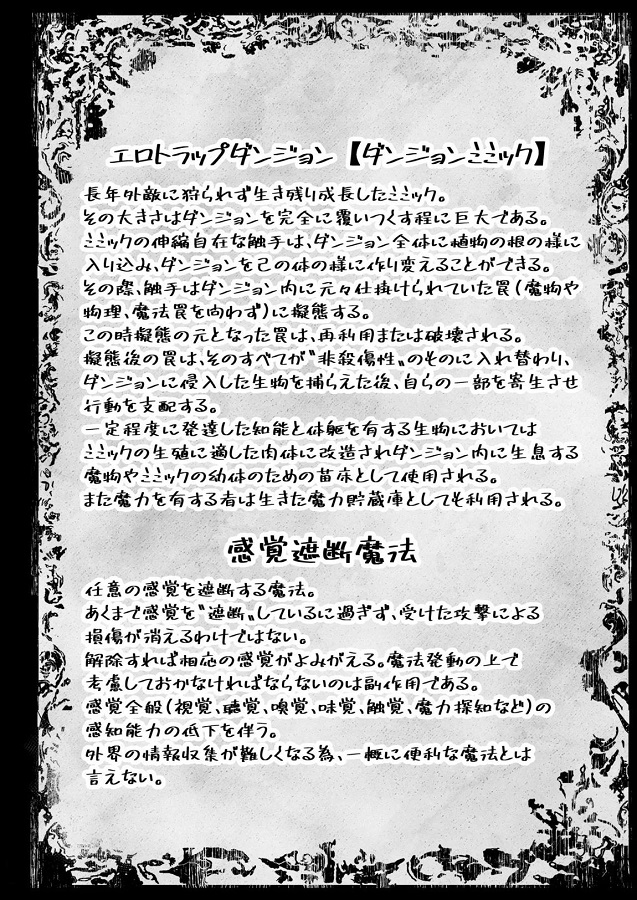 エロトラップダンジョン【ダンジョンミミック】
長年外敵に狩られず生き残り成長したミミック。
その大きさはダンジョンを完全に覆いつくす程に巨大である。
ミミックの伸縮自在な触手は、ダンジョン全体に植物の根の様に
入り込み、ダンジョンを己の体の様に作り変えることができる。
その際、触手はダンジョン内に元々仕掛けられていた罠(魔物や
物理、魔法罠を向わず)に擬態する。
この時擬態の元となった罠は、再利用または破壊される。
擬態後の罠は、そのすべてが〝非殺傷性〟のそのに入れ替わり、
ダンジョンに侵入した生物を捕らえた後、自らの一部を寄生させ
行動を支配する。
一定程度に発達した知能と体躯を有する生物においては
ミミックの生殖に適した肉体に改造されダンジョン内に生息する
魔物やミミックの幼体のための苗床として使用される。
また魔力を有する者は生きた魔力貯蔵庫としても利用される。
感覚遮断魔法
任意の感覚を遮断する魔法。
あくまで感覚を〝遮断〟しているに過ぎず、受けた攻撃による
損傷が消えるわけではない。
解除すれば相応の感覚がよみがえる。魔法発動の上で
考慮しておかなければならないのは副作用である。
感覚全般(視覚、聴覚、嗅覚、味覚、触覚、魔力探知など)の
感知能力の低下を伴う。
外界の情報収集が難しくなる為、一概に便利な魔法とは
言えない。